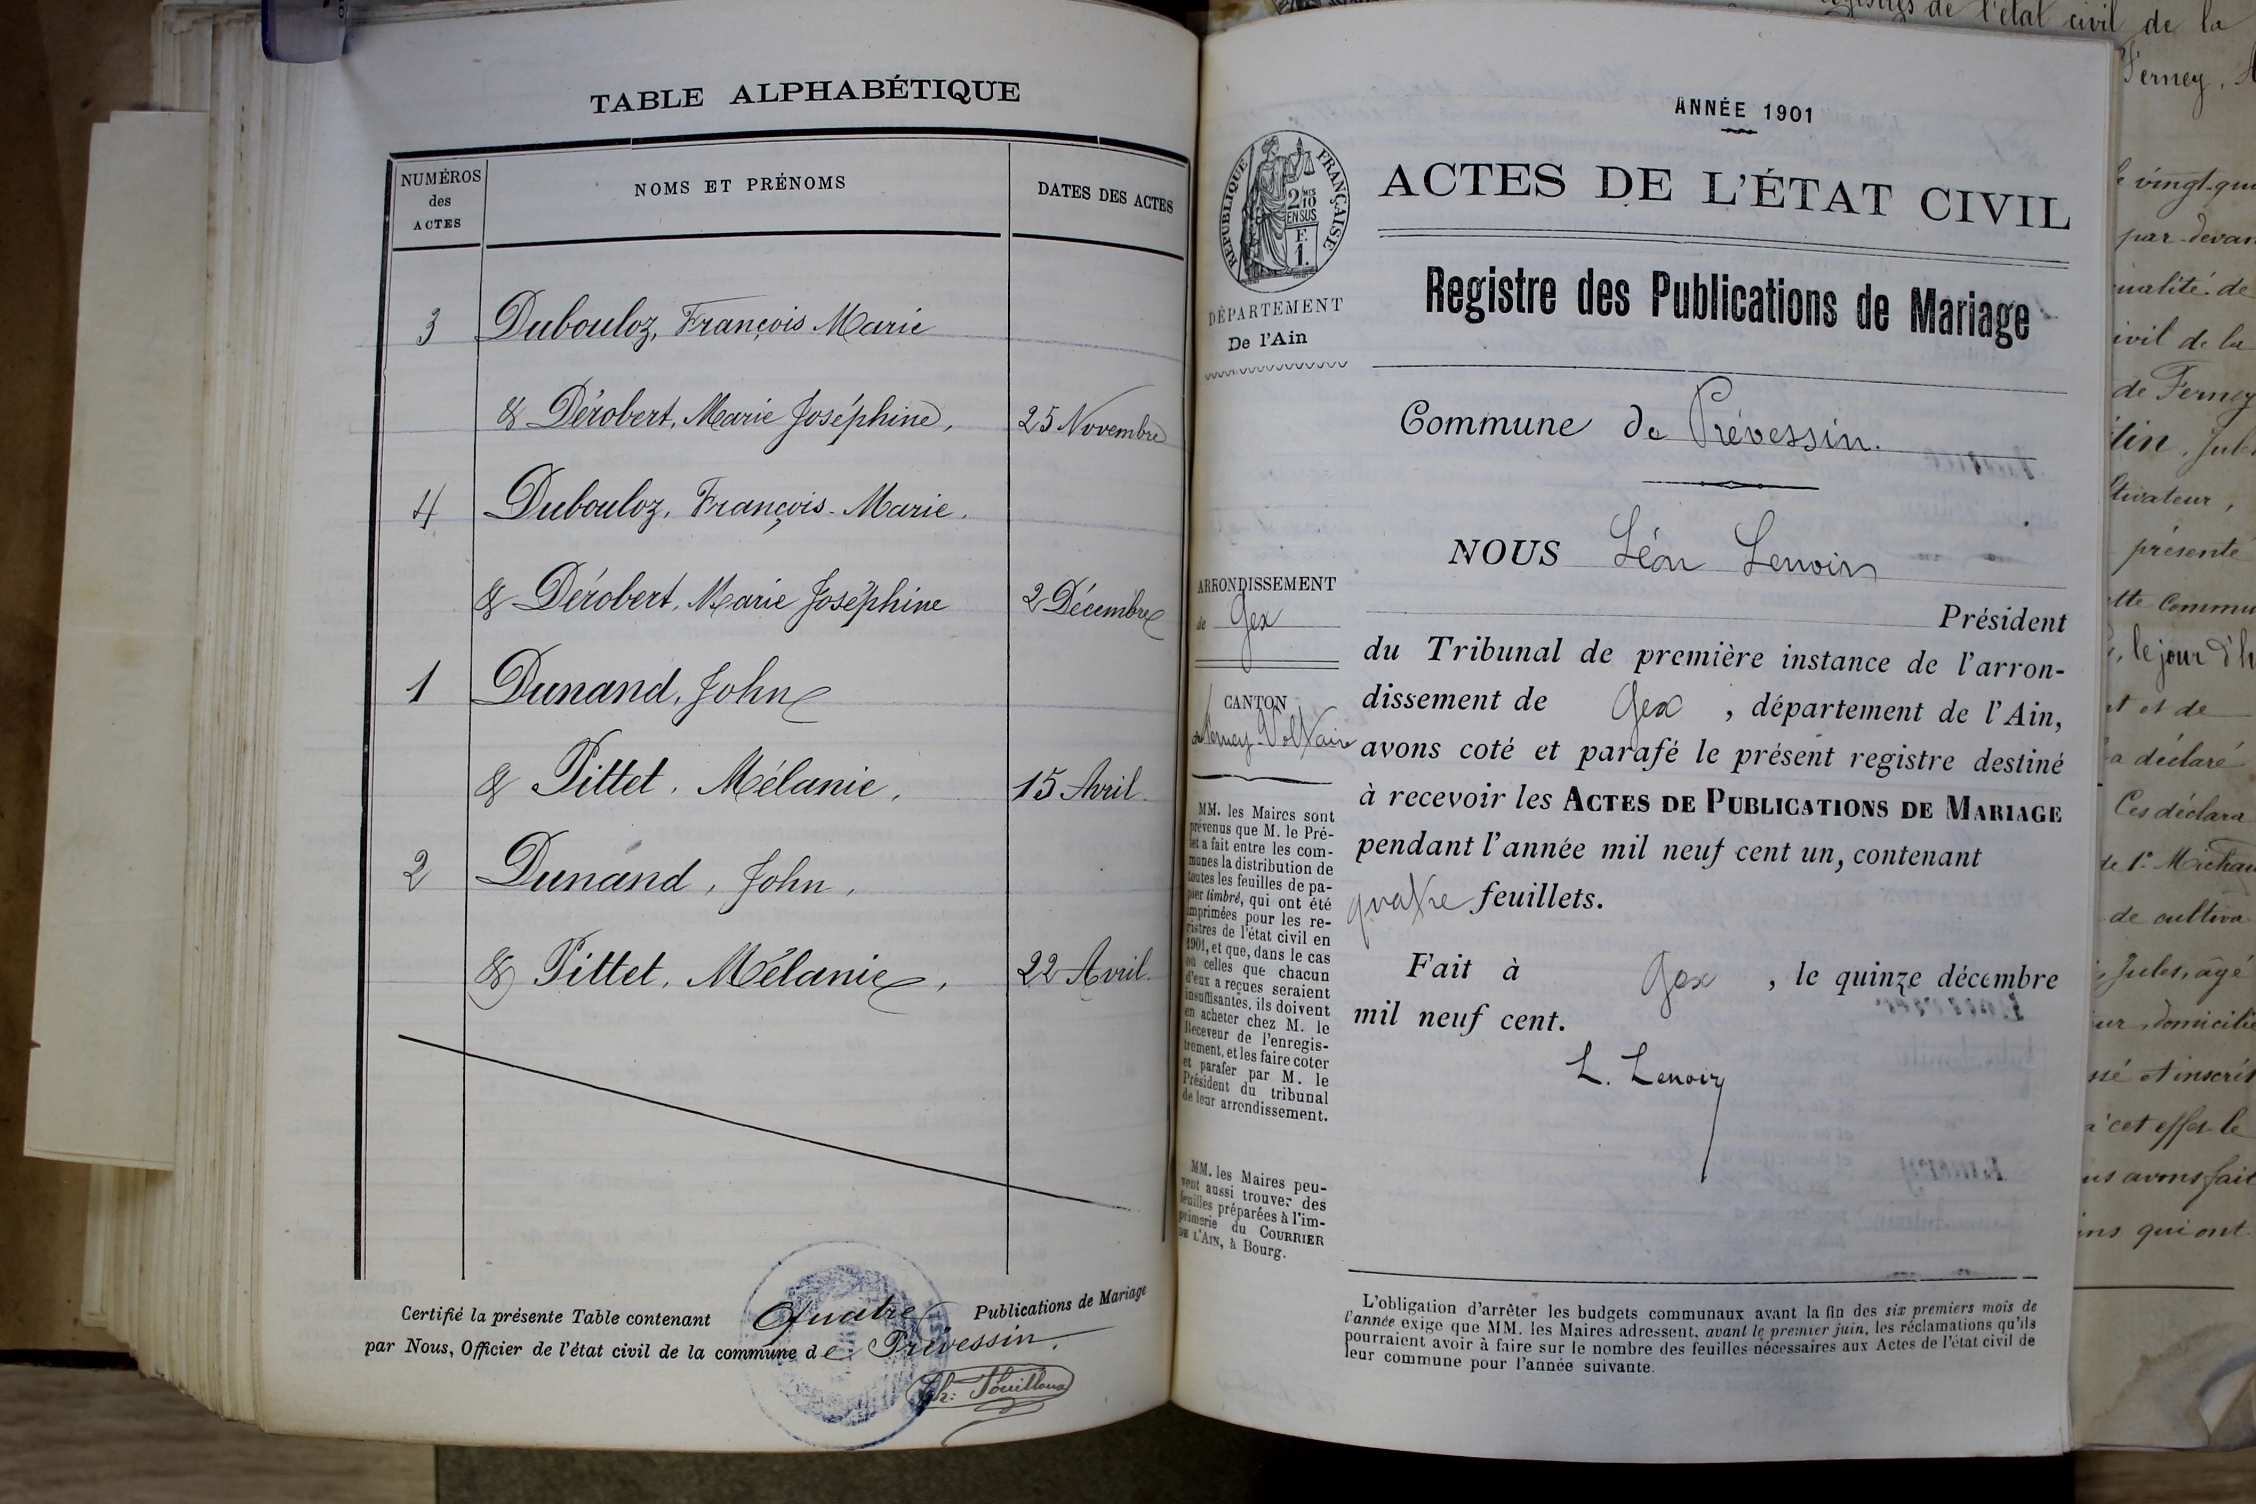 TABLE ALPHABÉTIQUE
NUMÉROS
des
ACTES
NOMS ET PRÉNOMS
DATES DES ACTES
3 Dubouloz, François Marie
& Dérobert, Marie Joséphine, 25 Novembre
4 Dubouloz, François-Marie.
& Dérobert, Marie Joséphine 2 Décembre
1 Dunand, John
& Pittet, Mélanie, 15 Avril.
2 Dunand, John,
& Pittet, Mélanie, 22 Avril.
Certifié la présente Table contenant Quatre Publications de Mariage
par Nous, Officier de l'état civil de la commune de Prévessin.
ANNÉE 1901
RÉPUBLIQUE FRANÇAISE
2 10
EN SUS
F.
1.
DÉPARTEMENT
De l'Ain
ARRONDISSEMENT
de Gex
CANTON
de Ferney-Voltaire
MM. les Maires sont
prévenus que M. le Pré-
fet a fait entre les com-
munes la distribution de
toutes les feuilles de pa-
pier timbré, qui ont été
imprimées pour les re-
gistres de l'état civil en
1901, et que, dans le cas
où celles que chacun
d'eux a reçues seraient
insuffisantes, ils doivent
en acheter chez M. le
Receveur de l'enregis-
trement, et les faire coter
et parafer par M. le
Président du tribunal
de leur arrondissement.
MM. les Maires peu-
vent aussi trouver des
feuilles préparées à l'im-
primerie du COURRIER
DE L'AIN, à Bourg.
ACTES DE L'ÉTAT CIVIL
Registre des Publications de Mariage
Commune de Prévessin.
NOUS Léon Lenoir
Président
du Tribunal de première instance de l'arron-
dissement de Gex, département de l'Ain,
avons coté et parafé le présent registre destiné
à recevoir les ACTES DE PUBLICATIONS DE MARIAGE
pendant l'année mil neuf cent un, contenant
quatre feuillets.
Fait à Gex, le quinze décembre
mil neuf cent.
L. Lenoir
L'obligation d'arrêter les budgets communaux avant la fin des six premiers mois de
l'année exige que MM. les Maires adressent, avant le premier juin, les réclamations qu'ils
pourraient avoir à faire sur le nombre des feuilles nécessaires aux Actes de l'état civil de
leur commune pour l'année suivante.
l'état civil de la
Ferney,
par-devan
ualité de
ivil de la
de Ferney
tin, Jule
ltivateur,
présenté
tte Commu
le jour d'h
t et de
a déclaré
Ces déclara
de cultiva
Jules, âgé
ur, domicilié
sé et inscrit
à cet effet le
us avons fait
ins qui ont